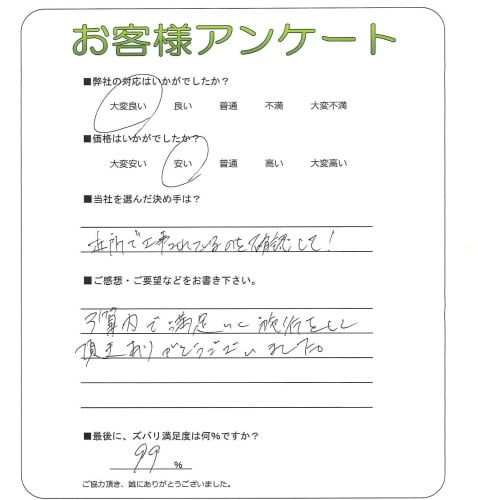 お客様アンケート
■弊社の対応はいかがでしたか？
大変良い 良い 普通 不満 大変不満
■価格はいかがでしたか？
大変安い 安い 普通 高い 大変高い
■当社を選んだ決め手は？
近所で工事されているのを確認して！
■ご感想・ご要望などをお書き下さい。
予算内で満足いく施行をして
頂きありがとうございました。
■最後に、ズバリ満足度は何％ですか？
99 ％
ご協力頂き、誠にありがとうございました。